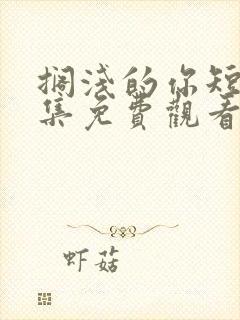 搁浅的你短
集免費觀看
虾菇